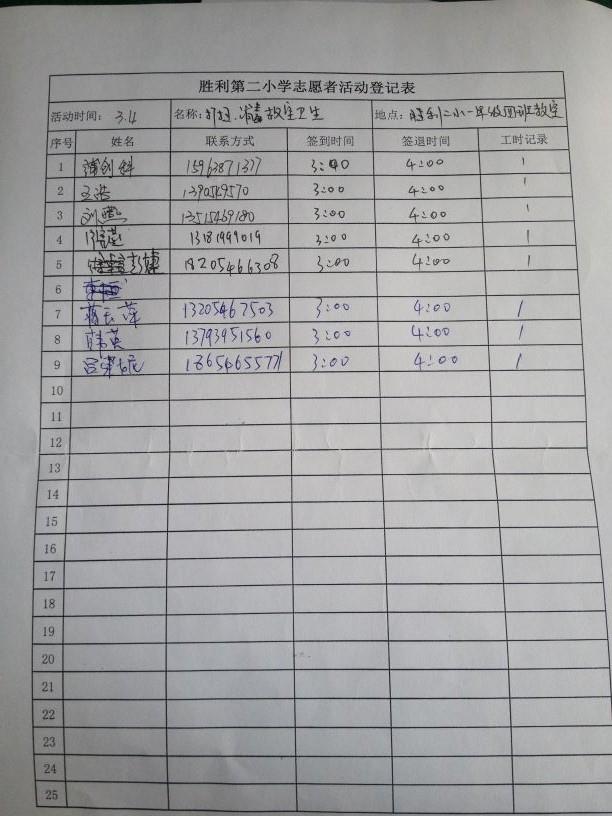 胜利第二小学志愿者活动登记表
活动时间: 3.4 名称:打扫.消毒教室卫生 地点: 胜利二小一年级四班教室
序号 姓名 联系方式 签到时间 签退时间 工时记录
1 15963871377 3:40 4:00 1
2 王浩 1390549570 3:00 4:00 1
3 刘燕 13515469180 3:00 4:00 1
4 13181999019 3:00 4:00 1
5 18205466308 3:00 4:00 1
6
7 蒋云萍 13205467503 3:00 4:00 1
8 韩英 13793951560 3:00 4:00 1
9 18654655771 3:00 4:00 1
10
11
12
13
14
15
16
17
18
19
20
21
22
23
24
25